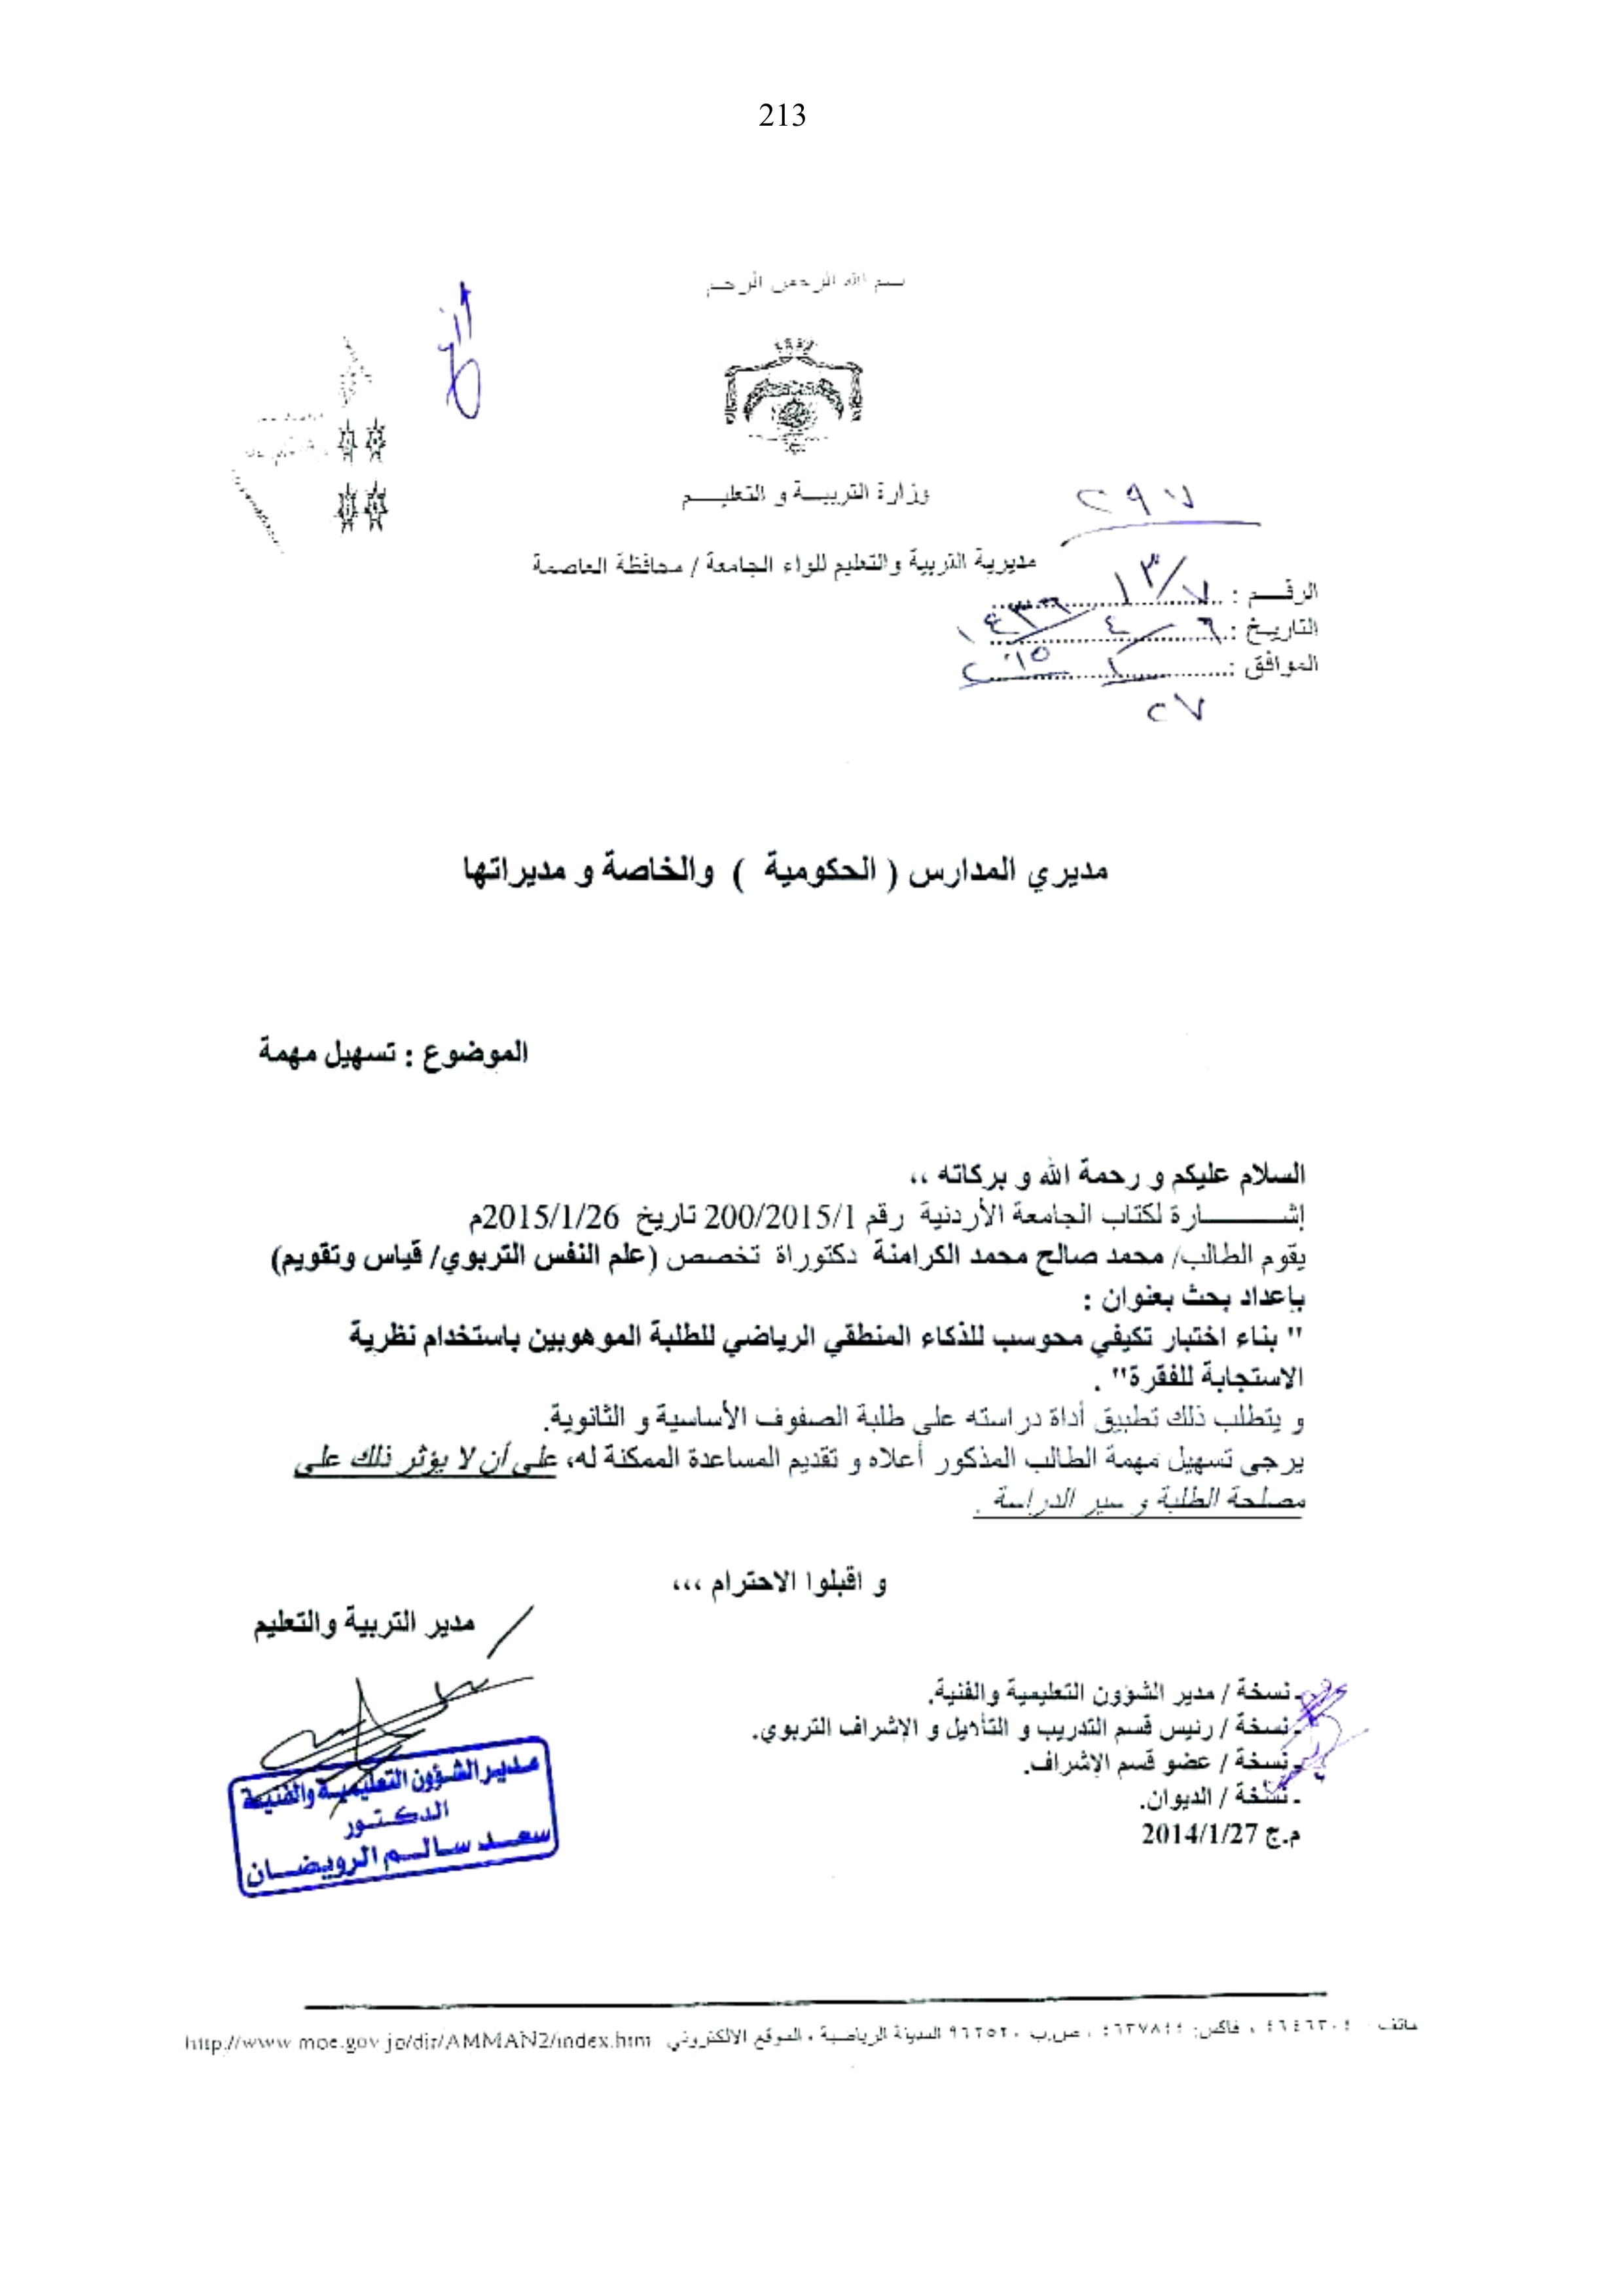 213
بسم الله الرحمن الرحيم
وزارة التربيـــة و التعليـــــم
مديرية التربية والتعليم للواء الجامعة / محافظة العاصمة
٢٩٧
الرقـــم : ١٣/٧
التاريخ : ٦ / ٤ / ١٤٣٦
الموافق : ٢٧ / ١ / ٢٠١٥
مديري المدارس ( الحكومية ) والخاصة و مديراتها
الموضوع : تسهيل مهمة
السلام عليكم و رحمة الله و بركاته ،،
إشــــــــارة لكتاب الجامعة الأردنية رقم 200/2015/1 تاريخ 2015/1/26م
يقوم الطالب/ محمد صالح محمد الكرامنة دكتوراة تخصص (علم النفس التربوي/ قياس وتقويم)
بإعداد بحث بعنوان :
" بناء اختبار تكيفي محوسب للذكاء المنطقي الرياضي للطلبة الموهوبين باستخدام نظرية
الاستجابة للفقرة" .
و يتطلب ذلك تطبيق أداة دراسته على طلبة الصفوف الأساسية و الثانوية.
يرجى تسهيل مهمة الطالب المذكور أعلاه و تقديم المساعدة الممكنة له، على أن لا يؤثر ذلك على
مصلحة الطلبة و سير الدراسة .
و اقبلوا الاحترام ،،،
مدير التربية والتعليم
مدير الشؤون التعليميـة والفنيـة
الدكـتـور
سعـد سـالـم الرويضـان
ـ نسخة / مدير الشؤون التعليمية والفنية.
ـ نسخة / رئيس قسم التدريب و التأهيل و الإشراف التربوي.
ـ نسخة / عضو قسم الإشراف.
ـ نسخة / الديوان.
م.ج 2014/1/27
هاتف ، فاكس: ٤٦٣٧٨٤٤ ، ص.ب ٩٦٢٥٢٠ المدينة الرياضية ، الموقع الالكتروني http://www.moe.gov.jo/dir/AMMAN2/index.htm